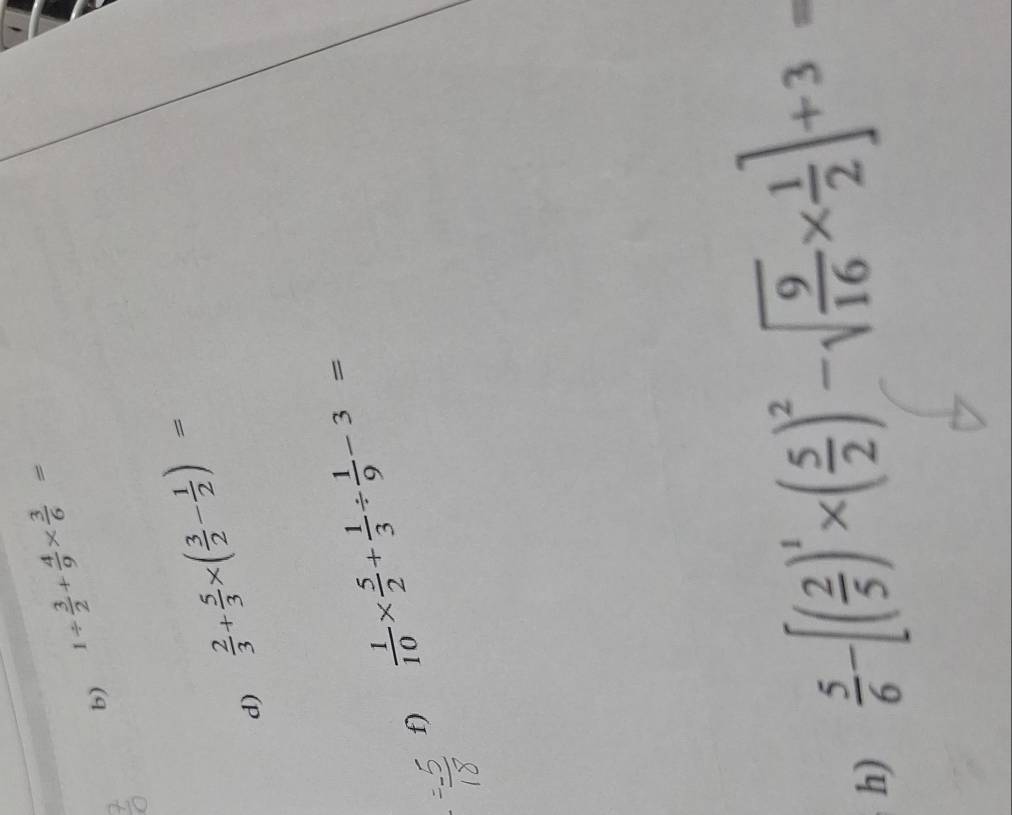 b) 1 ÷ 3/2 + 4/9 × 3/6 =
d) 2/3 + 5/3 × (3/2 − 1/2) =
= -5/18
f) 1/10 × 5/2 + 1/3 ÷ 1/9 − 3 =
h) 5/6 − [(2/5)¹ × (5/2)² − √(9/16) × 1/2] + 3 =